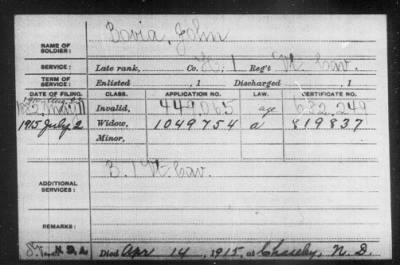 NAME OF SOLDIER: Bovia, John
SERVICE: Late rank, Co. H, 1 Reg't Vt. Cav.
TERM OF SERVICE: Enlisted 1 Discharged 1
DATE OF FILING. CLASS. APPLICATION NO. LAW. CERTIFICATE NO.
Invalid, 449,065 age 682.249
1915 July 2 Widow, 1049754 a 819837
Minor,
ADDITIONAL SERVICES: B. 1 Vt. Cav.
REMARKS:
N.D.A. Died Apr 14, 1915, at Chaseley, N. D.